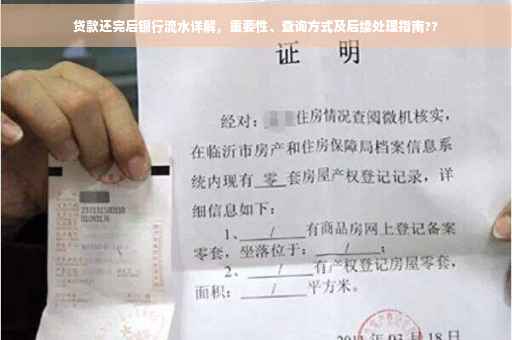 贷款还完后银行流水详解，重要性、查询方式及后续处理指南??
证 明
经对：住房情况查阅微机核实，
在临沂市房产和住房保障局档案信息系
统内现有 零 套房屋产权登记记录，详
细信息如下：
1、 / 有商品房网上登记备案
零套，坐落位于： / ；
2、 / 有产权登记房屋零套，
面积： / 平方米。